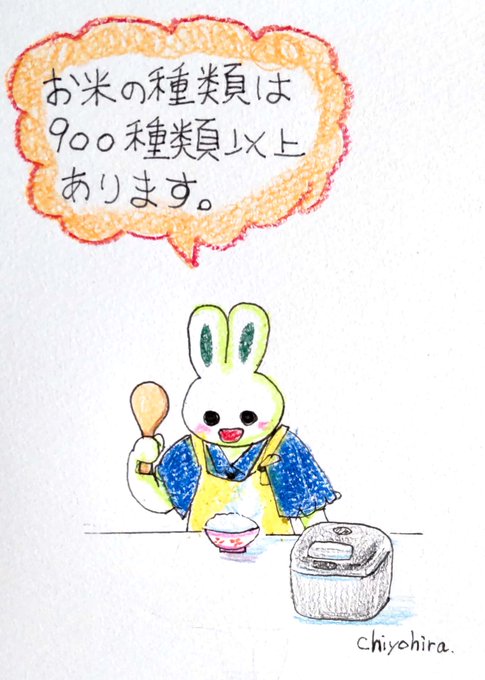 お米の種類は
900種類以上
あります。
chiyohira.